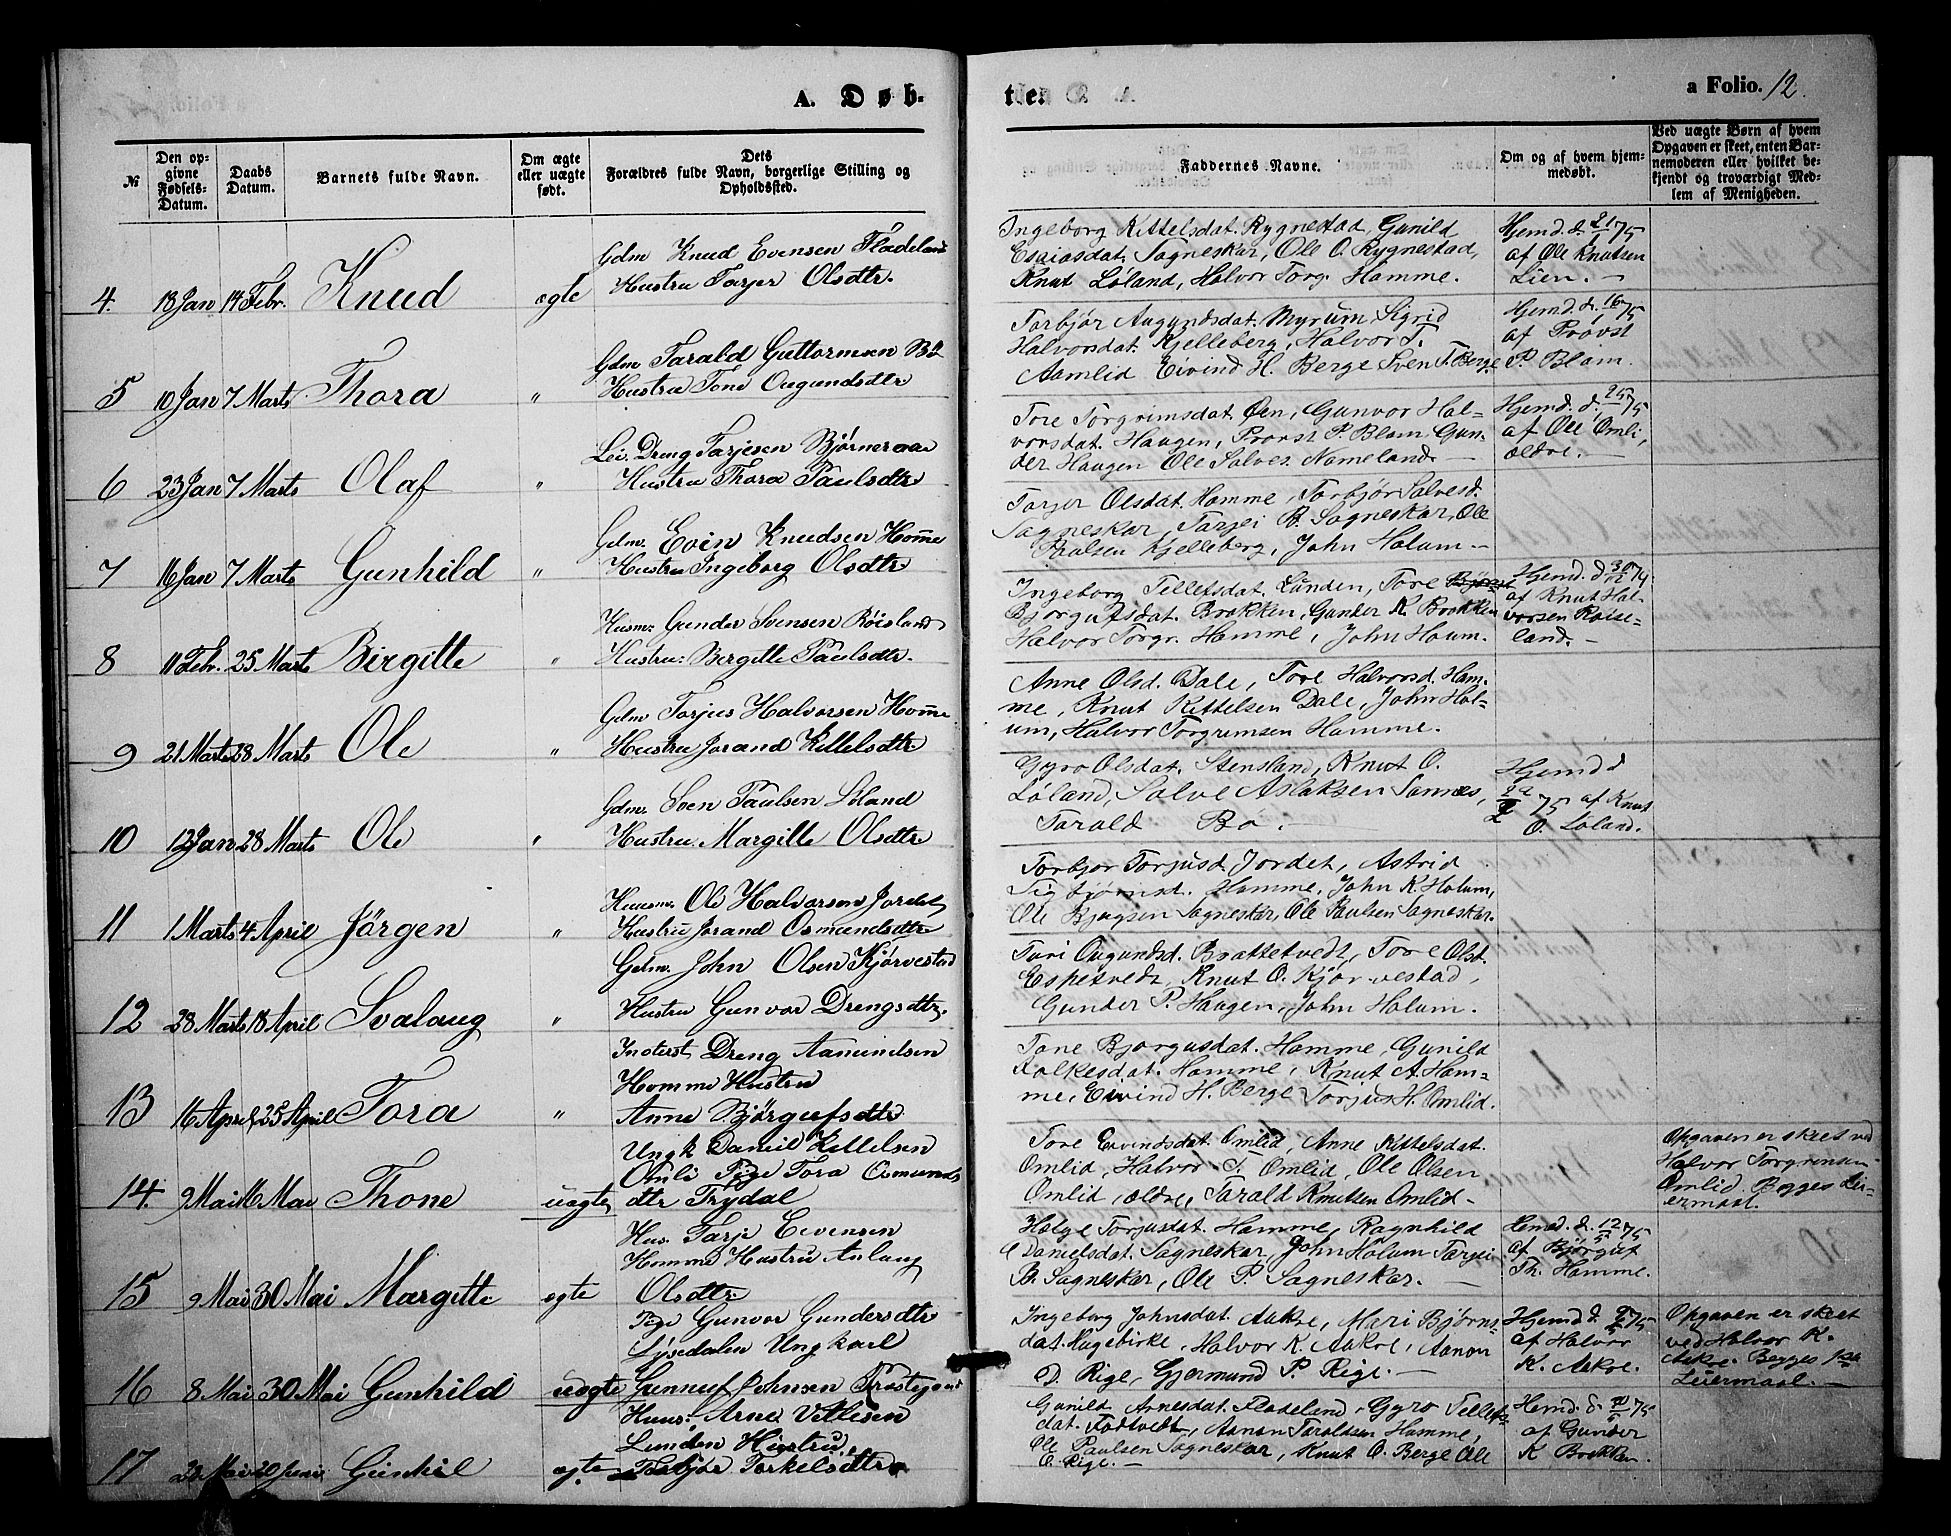 A. Døb-
te.
a Folio. 12.
№
Den opgivne Fødsels-Datum.
Daabs Datum.
Barnets fulde Navn.
Om ægte eller uægte født.
Dets
Forældres fulde Navn, borgerlige Stilling og
Opholdssted.
Faddernes Navne.
Om og af hvem hjemmedøbt.
Ved uægte Børn af hvem
Opgaven er skeet, enten Bar-
nemoderen eller hvilket be-
kjendt og troværdigt Med-
lem af Menigheden.
4. 13 Jan 14 Febr. Knud ægte
Gdm Knud Evensen Fladeland
Hustru Tarjer Olsdtr.
Ingeborg Kittelsdat. Rygnestad, Gunild
Esaiasdat. Sagneskar, Ole O. Rygnestad,
Knut Løland, Halvor Torg. Hamme.
Hjemd. d. 21/1 75
af Ole Knutsen
Lien. —
5 10 Jan 7 Marts Thora "
Gdm Tarald Guttormsen Bø
Hustru Tone Ougundsdtr
Torbjør Augundsdat. Myrum, Sigrid
Halvorsdat. Kjelleberg, Halvor T.
Aamlid Eivind H. Berge Sven T. Berge
Hjemd. d. 16/1 75
af Provst
P. Blom.
6 23 Jan 7 Marts Olaf "
Lei. Dreng Tarjesen Bjørneraa
Hustru Thora Paulsdtr
Tore Torgrimsdat. Øen, Gunvor Hal-
vorsdat. Haugen, Provst P. Blom Gun-
der Haugen Ole Salves. Nomeland. —
Hjemd. d. 25/1 75
af Ole Omli,
ældre. —
7 16 Jan 7 Marts Gunhild "
Gdm. Evin Knudsen Homme
Hustru Ingeborg Olsdtr
Torjer Olsdat. Homme, Torbjør Salvesd.
Sagneskar, Tarjei B. Sagneskar, Ole
Paulsen Kjelleberg, John Holum —
8 11 Febr. 25 Marts Birgitte "
Husm: Gunder Svensen Røisland
Hustru: Bergitte Paulsdtr.
Ingeborg Tellefsdat. Lunden, Tore
Bjorgufsdat. Brokken, Gunder K. Brokken
Halvor Torgr. Hamme, John Houm.
Hjemd. d. 30/12 74
af Knut Hal-
vorsen Røise-
land. —
9 21 Marts 28 Marts Ole "
Gdm Torjus Halvorsen Homme
Hustru Jorand Kittelsdtr
Anne Olsd. Dale, Tore Halvorsd. Ham-
me, Knut Kittelsen Dale, John Hol-
um, Halvor Torgrimsen Hamme.
10 12 Jan 28 Marts Ole "
Gdm. Sven Paulsen Løland
Hustru. Margitte Olsdtr
Gyro Olsdat. Stensland, Knut O.
Løland, Salve Aslaksen Sannes,
Tarald Bø. —
Hjemd d
75 af Knut
O. Løland.
11 1 Marts 4 April Jørgen "
Huusm. Ole Halvorsen Jordet
Hustru Jorand Osmundsdtr
Torbjor Torjusd. Jordet, Astrid
Sigbjørnsd. Hamme, John K. Holum,
Ole Bjugsen Sagneskar, Ole Paulsen Sagneskar.
12 28 Marts 18 April Svalaug "
Gdm. John Olsen Kjørvestad
Hustru Gunvor Drengsdtr.
Turi Ougundsd. Brattetvedt, Tore Olsd.
Espetvedt, Knut O. Kjør-vestad,
Gunder P. Haugen, John Holum.
13 16 April 25 April Tora "
Inderst Dreng Aamundsen
Homme Hustru
Anne Bjørgufsdtr
Tone Bjorgusdat. Homme, Gunild
Folkesdat. Homme, Knut A. Ham-
me, Eivind H. Berge Torjus H. Omlid.
14. 9 Mai 16 Mai Thone uægte
Ungk Daniel Kittelsen
Omli Pige Tora Osmunds
dtr Frydal
Tore Eivindsdat. Omlid, Anne Kittelsdat.
Omlid, Halvor T. Omlid, Ole Olsen
Omlid, ældre, Tarald Knutsen Omlid —
Opgaven er skeet ved
Halvor Torgrimsen
Omlid. Begges Lei-
ermaal.
15 9 Mai 30 Mai Margitte ægte
Hus. Tarje Eivensen
Homme Hustru Aslaug
Olsdtr.
Helge Torjusdat. Hamme, Ragnhild
Danielsdat. Sagneskar, John Holum Tarjei
B. Sagneskar, Ole P. Sagneskar. —
Hemd. d. 12/5 75
af Bjørgut
Th. Hamme.
16 8 Mai 30 Mai Gunhild uægte
Pige Gunvor Gundersdtr
Lysedalen Ungkarl
Gunneuf Johnsen
Ingeborg Johnsdat. Aakre, Mari Bjørns-
dat. Hagebirke, Halvor K. Aakre, Aanon
D. Rige, Gjermund P. Rige. —
Hjemd d 75
af Halvor
K. Aakre.
Opgaven er skeet
ved Halvor K.
Aakre. Begges 1ste
Leiermaal. —
17 Mai 20 Juni Gunhil ægte
Huus: Arne Vetlesen
Lunden Hustru
Torbjør Torkelsdtr
Gunild Arnesdat. Fladeland, Gyro Tellefs-
dat. Fodtvedt, Aanon Taraldsen Homme,
Ole Paulsen Sagneskar, Knut O. Berge Ole
O. Rige. —
Hemd. d 75
af Gunder
K Brokken.